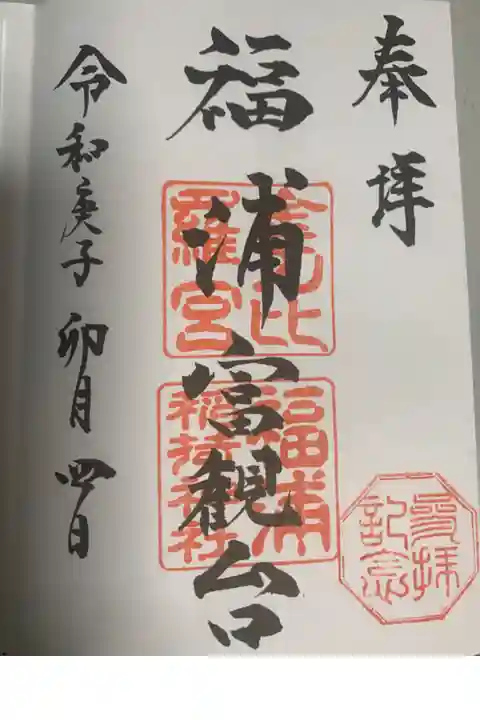 奉拝
福浦富観台
金毘比
羅宮
福浦
稲荷神社
参拝
記念
令和庚子 卯月 四日